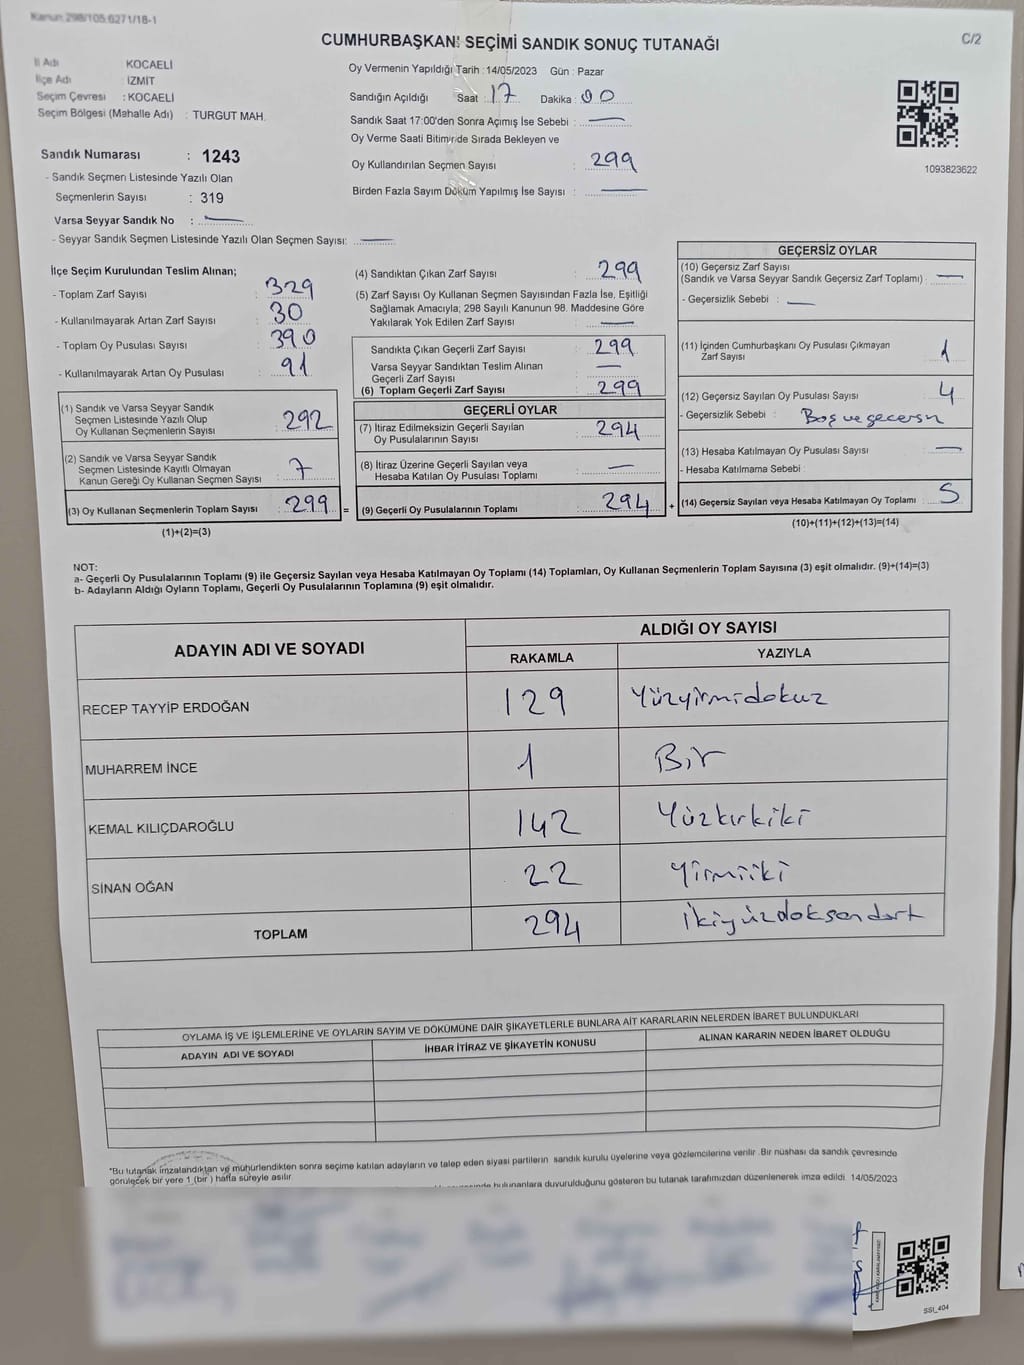 Kanun:298/105;6271/18-1
C/2
CUMHURBAŞKANI SEÇİMİ SANDIK SONUÇ TUTANAĞI
İl Adı : KOCAELİ
İlçe Adı : İZMİT
Seçim Çevresi : KOCAELİ
Seçim Bölgesi (Mahalle Adı) : TURGUT MAH.
Sandık Numarası : 1243
- Sandık Seçmen Listesinde Yazılı Olan
Seçmenlerin Sayısı : 319
Varsa Seyyar Sandık No : —
- Seyyar Sandık Seçmen Listesinde Yazılı Olan Seçmen Sayısı: —
Oy Vermenin Yapıldığı Tarih : 14/05/2023 Gün : Pazar
Sandığın Açıldığı Saat : 17 Dakika : 00
Sandık Saat 17:00'den Sonra Açımış İse Sebebi : —
Oy Verme Saati Bitiminde Sırada Bekleyen ve
Oy Kullandırılan Seçmen Sayısı : 299
Birden Fazla Sayım Döküm Yapılmış İse Sayısı : —
1093823622
İlçe Seçim Kurulundan Teslim Alınan;
- Toplam Zarf Sayısı : 329
- Kullanılmayarak Artan Zarf Sayısı : 30
- Toplam Oy Pusulası Sayısı : 390
- Kullanılmayarak Artan Oy Pusulası : 91
(1) Sandık ve Varsa Seyyar Sandık
Seçmen Listesinde Yazılı Olup
Oy Kullanan Seçmenlerin Sayısı : 292
(2) Sandık ve Varsa Seyyar Sandık
Seçmen Listesinde Kayıtlı Olmayan
Kanun Gereği Oy Kullanan Seçmen Sayısı : 7
(3) Oy Kullanan Seçmenlerin Toplam Sayısı : 299 =
(1)+(2)=(3)
(4) Sandıktan Çıkan Zarf Sayısı : 299
(5) Zarf Sayısı Oy Kullanan Seçmen Sayısından Fazla İse, Eşitliği
Sağlamak Amacıyla; 298 Sayılı Kanunun 98. Maddesine Göre
Yakılarak Yok Edilen Zarf Sayısı : —
Sandıkta Çıkan Geçerli Zarf Sayısı : 299
Varsa Seyyar Sandıktan Teslim Alınan
Geçerli Zarf Sayısı : —
(6) Toplam Geçerli Zarf Sayısı : 299
GEÇERLİ OYLAR
(7) İtiraz Edilmeksizin Geçerli Sayılan
Oy Pusulalarının Sayısı : 294
(8) İtiraz Üzerine Geçerli Sayılan veya
Hesaba Katılan Oy Pusulası Toplamı : —
(9) Geçerli Oy Pusulalarının Toplamı : 294 +
GEÇERSİZ OYLAR
(10) Geçersiz Zarf Sayısı
(Sandık ve Varsa Seyyar Sandık Geçersiz Zarf Toplamı) : —
- Geçersizlik Sebebi : —
(11) İçinden Cumhurbaşkanı Oy Pusulası Çıkmayan
Zarf Sayısı : 1
(12) Geçersiz Sayılan Oy Pusulası Sayısı : 4
- Geçersizlik Sebebi : Boş ve geçersn
(13) Hesaba Katılmayan Oy Pusulası Sayısı : —
- Hesaba Katılmama Sebebi :
(14) Geçersiz Sayılan veya Hesaba Katılmayan Oy Toplamı : 5
(10)+(11)+(12)+(13)=(14)
NOT:
a- Geçerli Oy Pusulalarının Toplamı (9) ile Geçersiz Sayılan veya Hesaba Katılmayan Oy Toplamı (14) Toplamları, Oy Kullanan Seçmenlerin Toplam Sayısına (3) eşit olmalıdır. (9)+(14)=(3)
b- Adayların Aldığı Oyların Toplamı, Geçerli Oy Pusulalarının Toplamına (9) eşit olmalıdır.
ADAYIN ADI VE SOYADI
ALDIĞI OY SAYISI
RAKAMLA YAZIYLA
RECEP TAYYİP ERDOĞAN 129 Yüzyirmidokuz
MUHARREM İNCE 1 Bir
KEMAL KILIÇDAROĞLU 142 Yüzkırkiki
SİNAN OĞAN 22 Yirmiiki
TOPLAM 294 İkiyüzdoksandört
OYLAMA İŞ VE İŞLEMLERİNE VE OYLARIN SAYIM VE DÖKÜMÜNE DAİR ŞİKAYETLERLE BUNLARA AİT KARARLARIN NELERDEN İBARET BULUNDUKLARI
ADAYIN ADI VE SOYADI İHBAR İTİRAZ VE ŞİKAYETİN KONUSU ALINAN KARARIN NEDEN İBARET OLDUĞU
*Bu tutanak imzalandıktan ve mühürlendikten sonra seçime katılan adayların ve talep eden siyasi partilerin sandık kurulu üyelerine veya gözlemcilerine verilir .Bir nüshası da sandık çevresinde
görülecek bir yere 1 (bir ) hafta süreyle asılır.
bulunanlara duyurulduğunu gösteren bu tutanak tarafımızdan düzenlenerek imza edildi. 14/05/2023
SSI_404